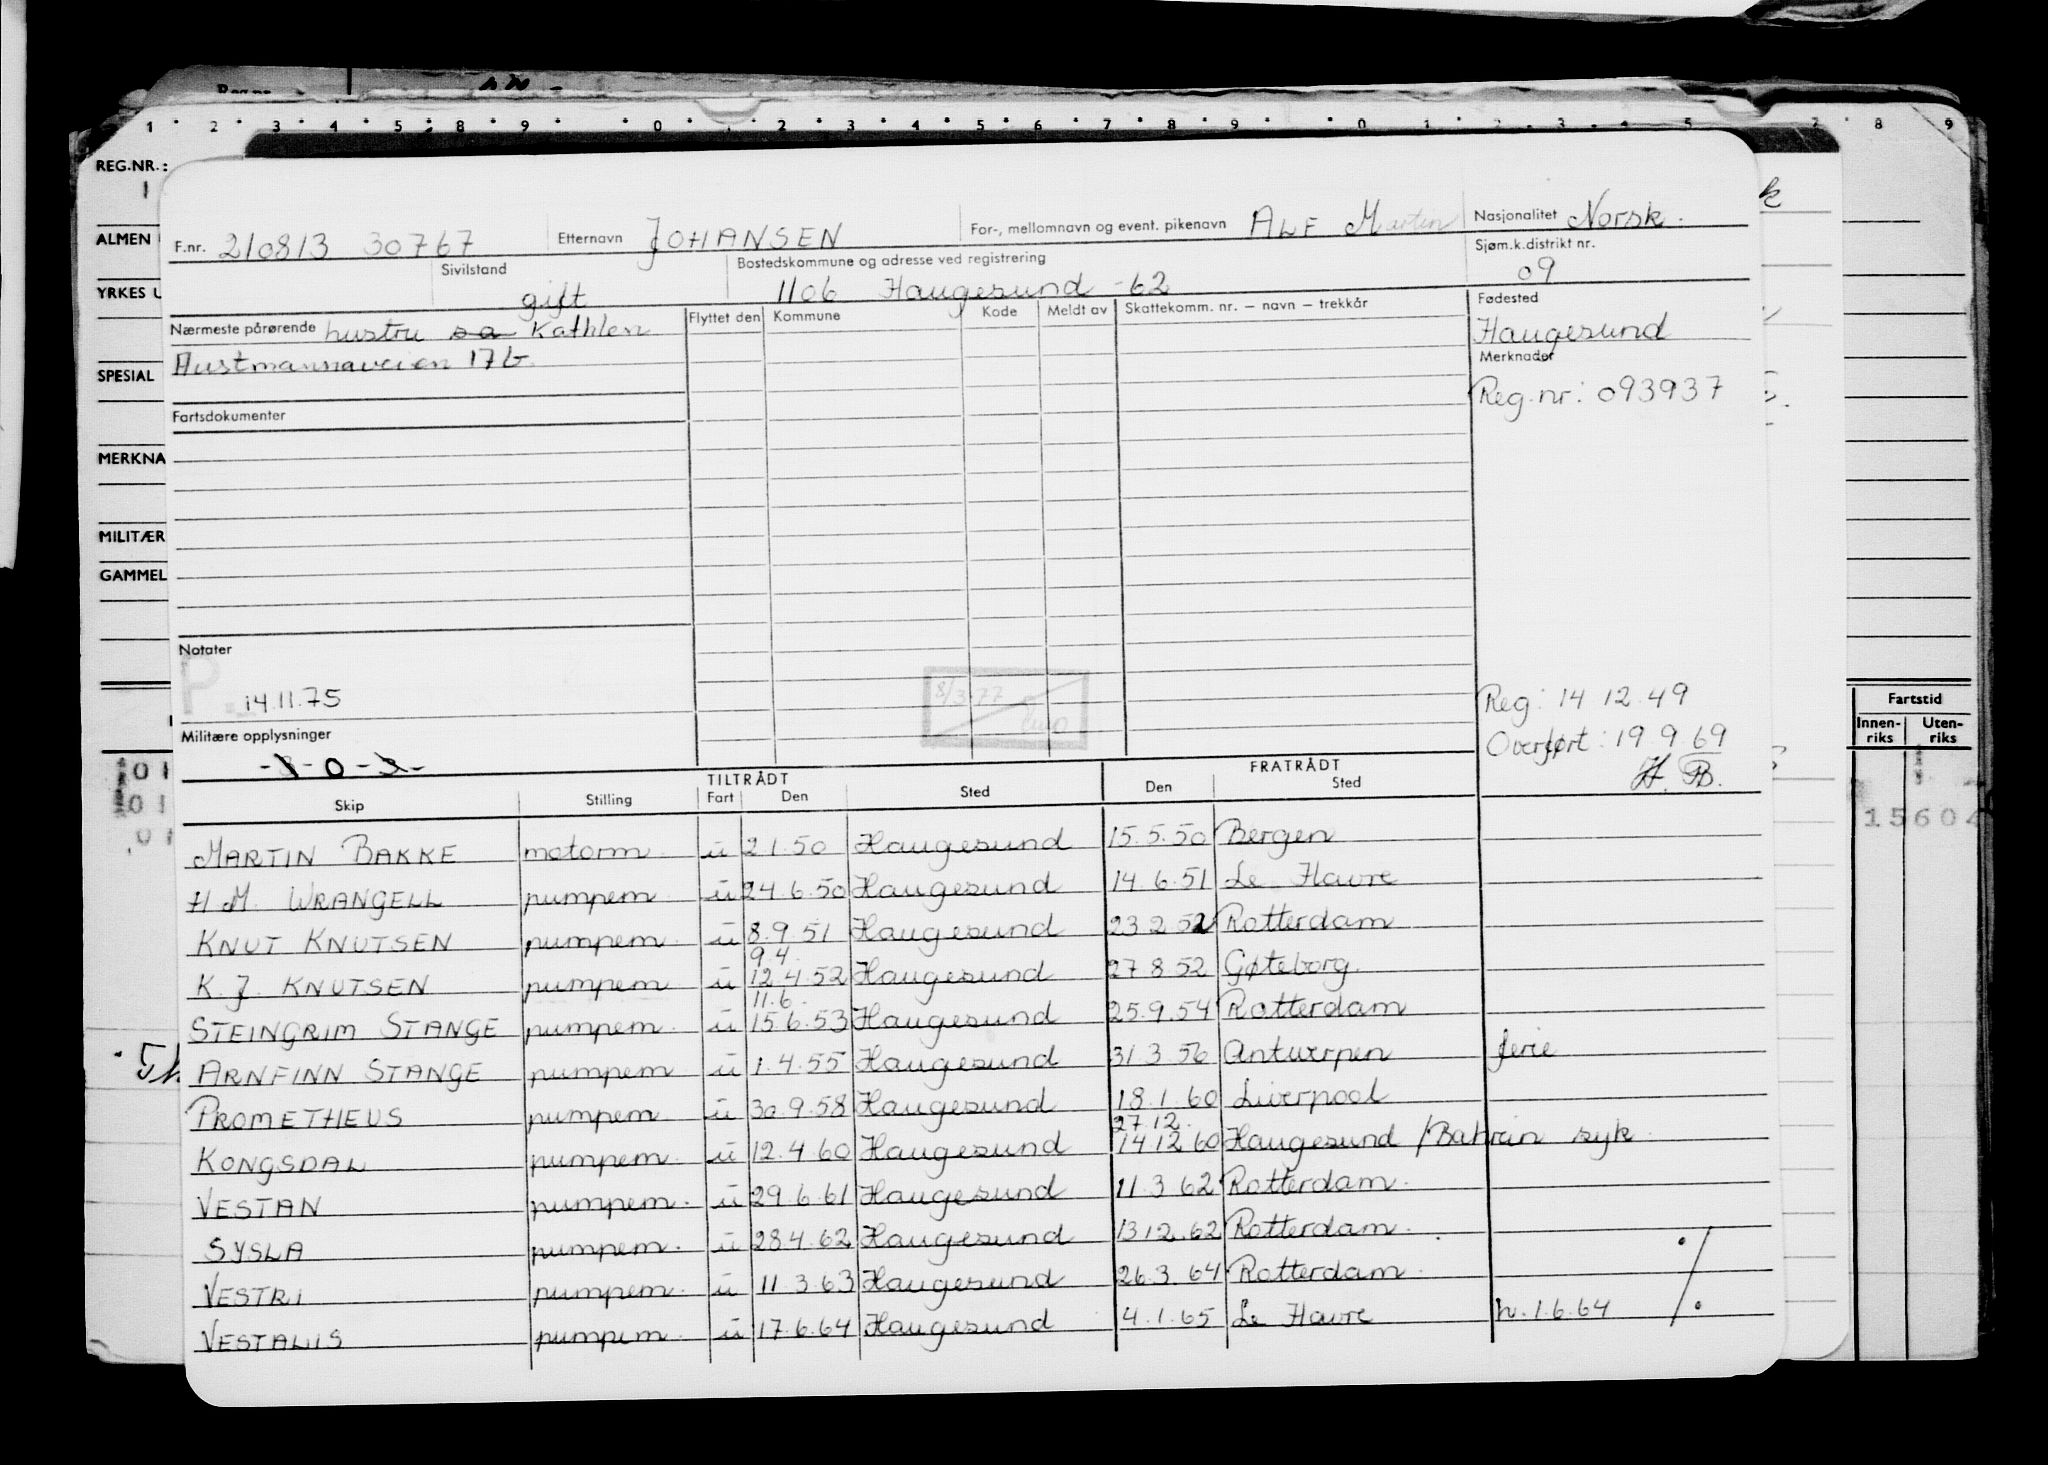 Reg.nr.
1 2 3 4 5 8 9 0 1 2 3 4 5 6 7 8 9 0 1 2 3 4 5 7 8 9
REG.NR.:
1
ALMEN
YRKES U
SPESIAL
MERKNA
MILITÆR
GAMMEL
F.nr. 210813 30767 Etternavn JOHANSEN For-, mellomnavn og event. pikenavn ALF Martin Nasjonalitet Norsk.
Sivilstand gift Bostedskommune og adresse ved registrering 1106 Haugesund -62 Sjøm.k.distrikt nr. 09
Nærmeste pårørende hustru sa Kathlen Flyttet den Kommune Kode Meldt av Skattekomm. nr. – navn – trekkår Fødested
Hustmannaveien 17b. Haugesund
Merknader
Reg.nr: 093937
Fartsdokumenter
Notater
P. 14.11.75 8/3.77
Reg: 14 12.49
Militære opplysninger
Overført: 19.9.69
H. B.
TILTRÅDT FRATRÅDT
Skip Stilling Fart Den Sted Den Sted
MARTIN BAKKE motorm. u 2 1.50 Haugesund 15.5.50 Bergen
H.M. WRANGELL pumpem. u 24.6.50 Haugesund 14.6.51 Le Havre
KNUT KNUTSEN pumpem. u 8.9.51 Haugesund 23 2 52 Rotterdam
9.4.
K.J. KNUTSEN pumpem u 12.4.52 Haugesund 27 8 52 Gøteborg.
11.6.
STEINGRIM STANGE pumpem. u 15.6.53 Haugesund 25.9.54 Rotterdam
ARNFINN STANGE pumpem u 1.4.55 Haugesund 31 3 56 Antwerpen ferie
PROMETHEUS pumpem u 30.9.58 Haugesund 18.1.60 Liverpool
27.12.
KONGSDAL pumpem. u 12.4.60 Haugesund 14 12 60 Haugesund / Bahrein syk.
VESTAN pumpem. u 29.6.61 Haugesund 11.3 62 Rotterdam.
SYSLA pumpem. u 28.4.62 Haugesund 13 12.62 Rotterdam.
VESTRI pumpem. u 11.3.63 Haugesund 26.3.64 Rotterdam.
VESTALIS pumpem. u 17.6.64 Haugesund 4.1.65 Le Havre h.1.6.64
Fartstid
Innen-
riks
Uten-
riks
15604